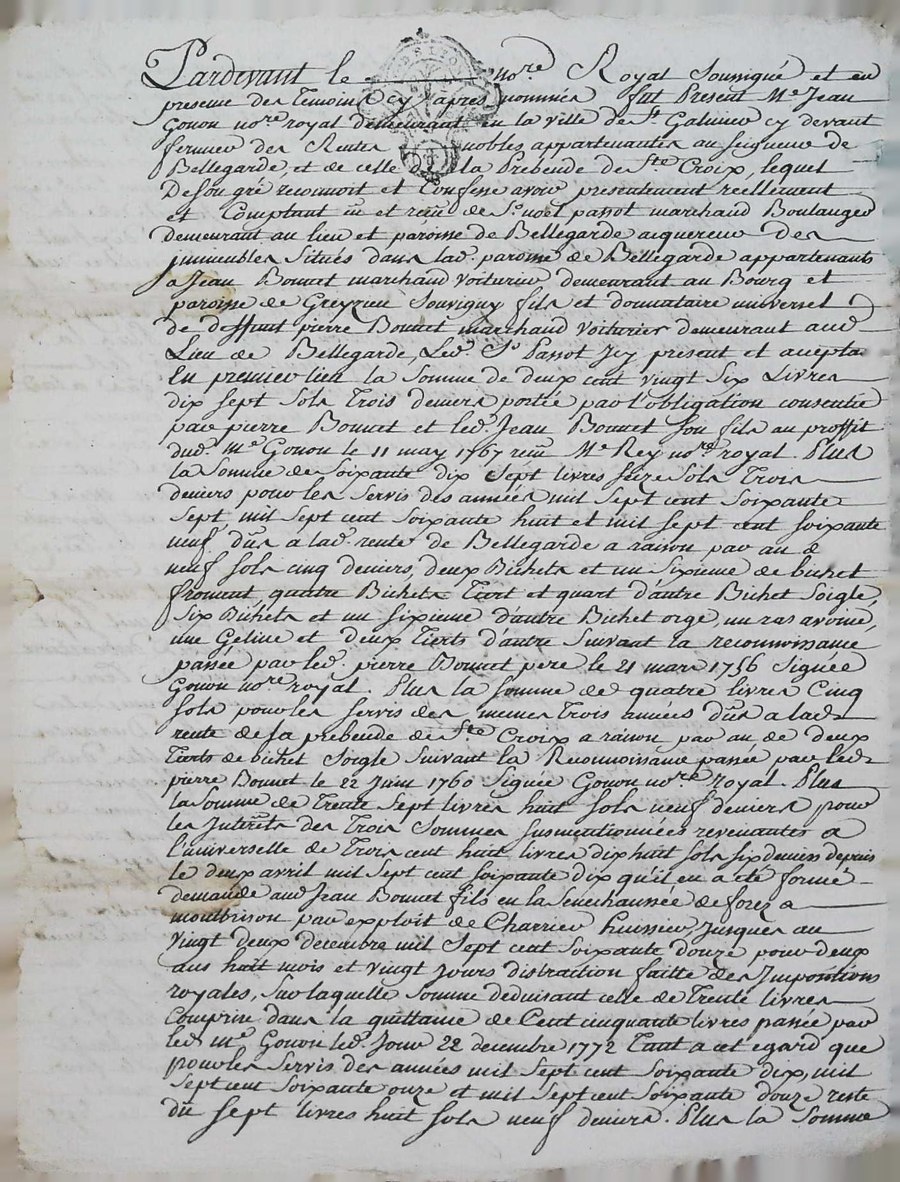 Pardevant le no.re Royal Soussigné et en
presence des Temoins Cy apres nommés fut Present M.e Jean
Gonon no.re royal demeurant en la ville de S.t Galmier cy devant
fermier des Rentes nobles appartenantes au seigneur de
Bellegarde, et de celle de la Prebende de S.te Croix, lequel
De son gré reconnoit et Confesse avoir presentement reellement
et Comptant eu et receu de S.r noel passot marchand Boulanger
demeurant au lieu et paroisse de Bellegarde acquereur des
jmmeubles situés dans lad. paroisse de Bellegarde appartenants
a Jean Bonnet marchand voiturier demeurant au Bourg et
paroisse de Greyzieu Souvigny fils et donnataire universel
de deffunt pierre Bonnet marchand voiturier demeurant aud.
Lieu de Bellegarde, Led. S.r Passot Jcy present et acceptant
En premier lieu la Somme de deux cent vingt Six Livres
dix sept sols Trois deniers portée par l'obligation consentie
par pierre Bonnet et led. Jean Bonnet son fils au proffit
dud. M.e Gonon le 11 may 1767 receu M.e Rey no.re royal. Plus
la Somme de Soixante dix Sept livres seize Sols Trois
deniers pour les Servis des années mil Sept cent Soixante
Sept, mil Sept cent Soixante huit et mil sept cent soixante
neuf dûs a lad. rente de Bellegarde a raison par an de
neuf sols cinq deniers, deux Bichets et un Sixieme de bichet
froment, quatre Bichets Tiert et quart d'autre Bichet Soigle,
Six Bichets et un sixieme d'autre Bichet orge, un ras avoine,
une Geline et deux Tierts d'autre Suivant la reconnoissance
passée par led. pierre Bonnet pere le 21 mars 1756 Signée
Gonon no.re royal. Plus la somme de quatre livres Cinq
sols pour les servis des memes Trois années dûs a lad.
rente de la prebende de S.te Croix a raison par an de deux
Tierts de bichet Soigle Suivant la Reconnoissance passée par led.
pierre Bonnet le 22 Juin 1760 Signée Gonon no.re royal. Plus
la Somme de Trente Sept livres huit Sols neuf deniers pour
les Jnterêts des Trois Sommes Susmentionnées revenantes a
l'universelle de Trois cent huit livres dix huit sols six deniers depuis
le deux avril mil Sept cent Soixante dix qu'il en a été formé
demande aud. Jean Bonnet fils en la Senechaussée de forez a
montbrison par exploit de Charrier huissier, jusques au
vingt deux decembre mil Sept cent Soixante douze pour deux
ans huit mois et vingt jours distraction faitte des Jmpositions
royales, Sur laquelle Somme deduisant celle de Trente livres
Comprise dans la quittance de Cent cinquante livres passée par
led. M.e Gonon led. Jour 22 decembre 1772 Tant a cet egard que
pour les Servis des années mil Sept cent Soixante dix, mil
Sept cent Soixante onze et mil Sept cent Soixante douze reste
dû Sept livres huit sols neuf deniers. Plus la Somme